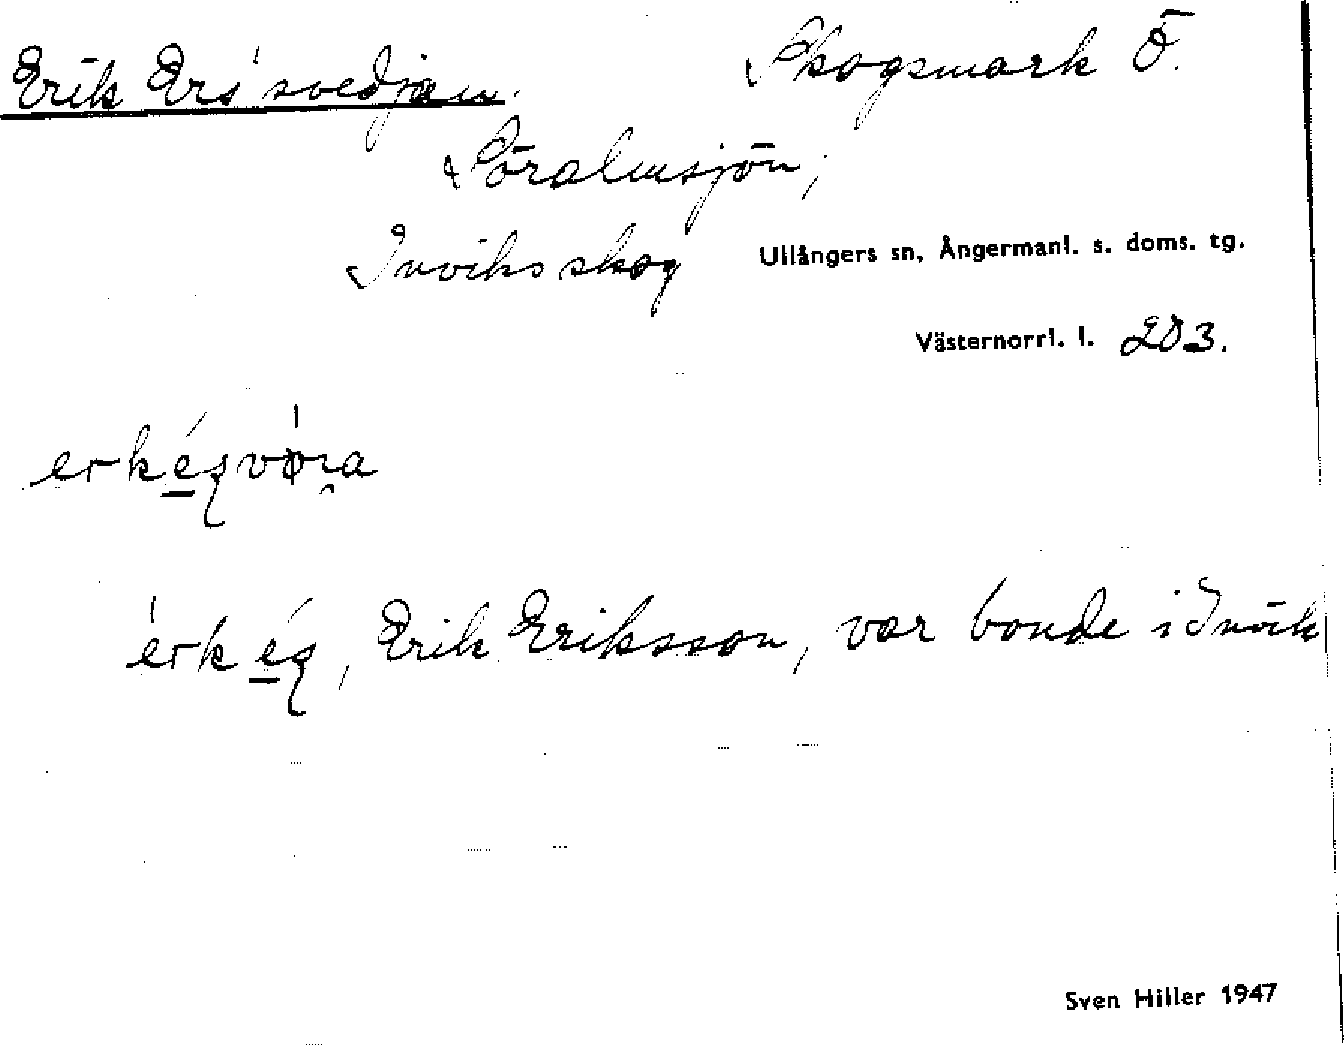 Erik Ers'svedjan. Skogsmark Ö.
Söralmsjön;
Inviksskog Ullångers sn, Ångermanl. s. doms. tg.
Västernorrl. l. 203.
, Erik Eriksson, var bonde i Invik
Sven Hiller 1947